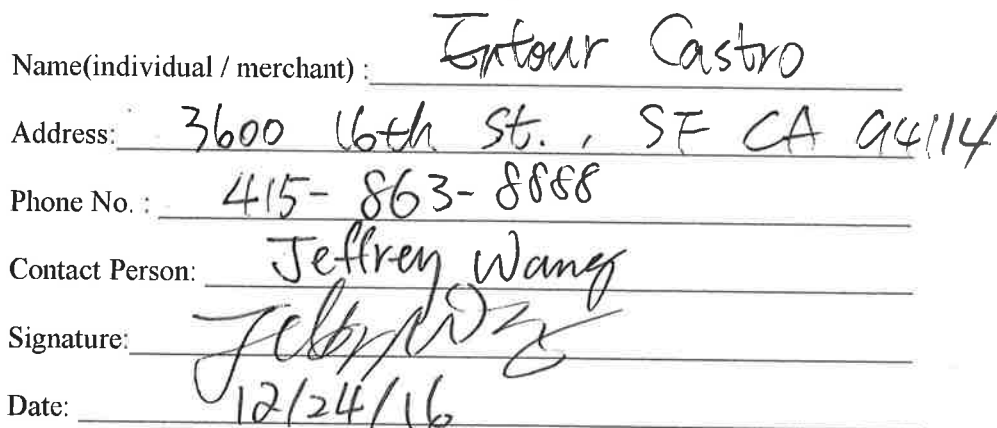 Name(individual / merchant) : Entour Castro
Address: 3600 16th St., SF CA 94114
Phone No. : 415-863-8888
Contact Person: Jeffrey Wang
Signature:
Date: 12/24/16